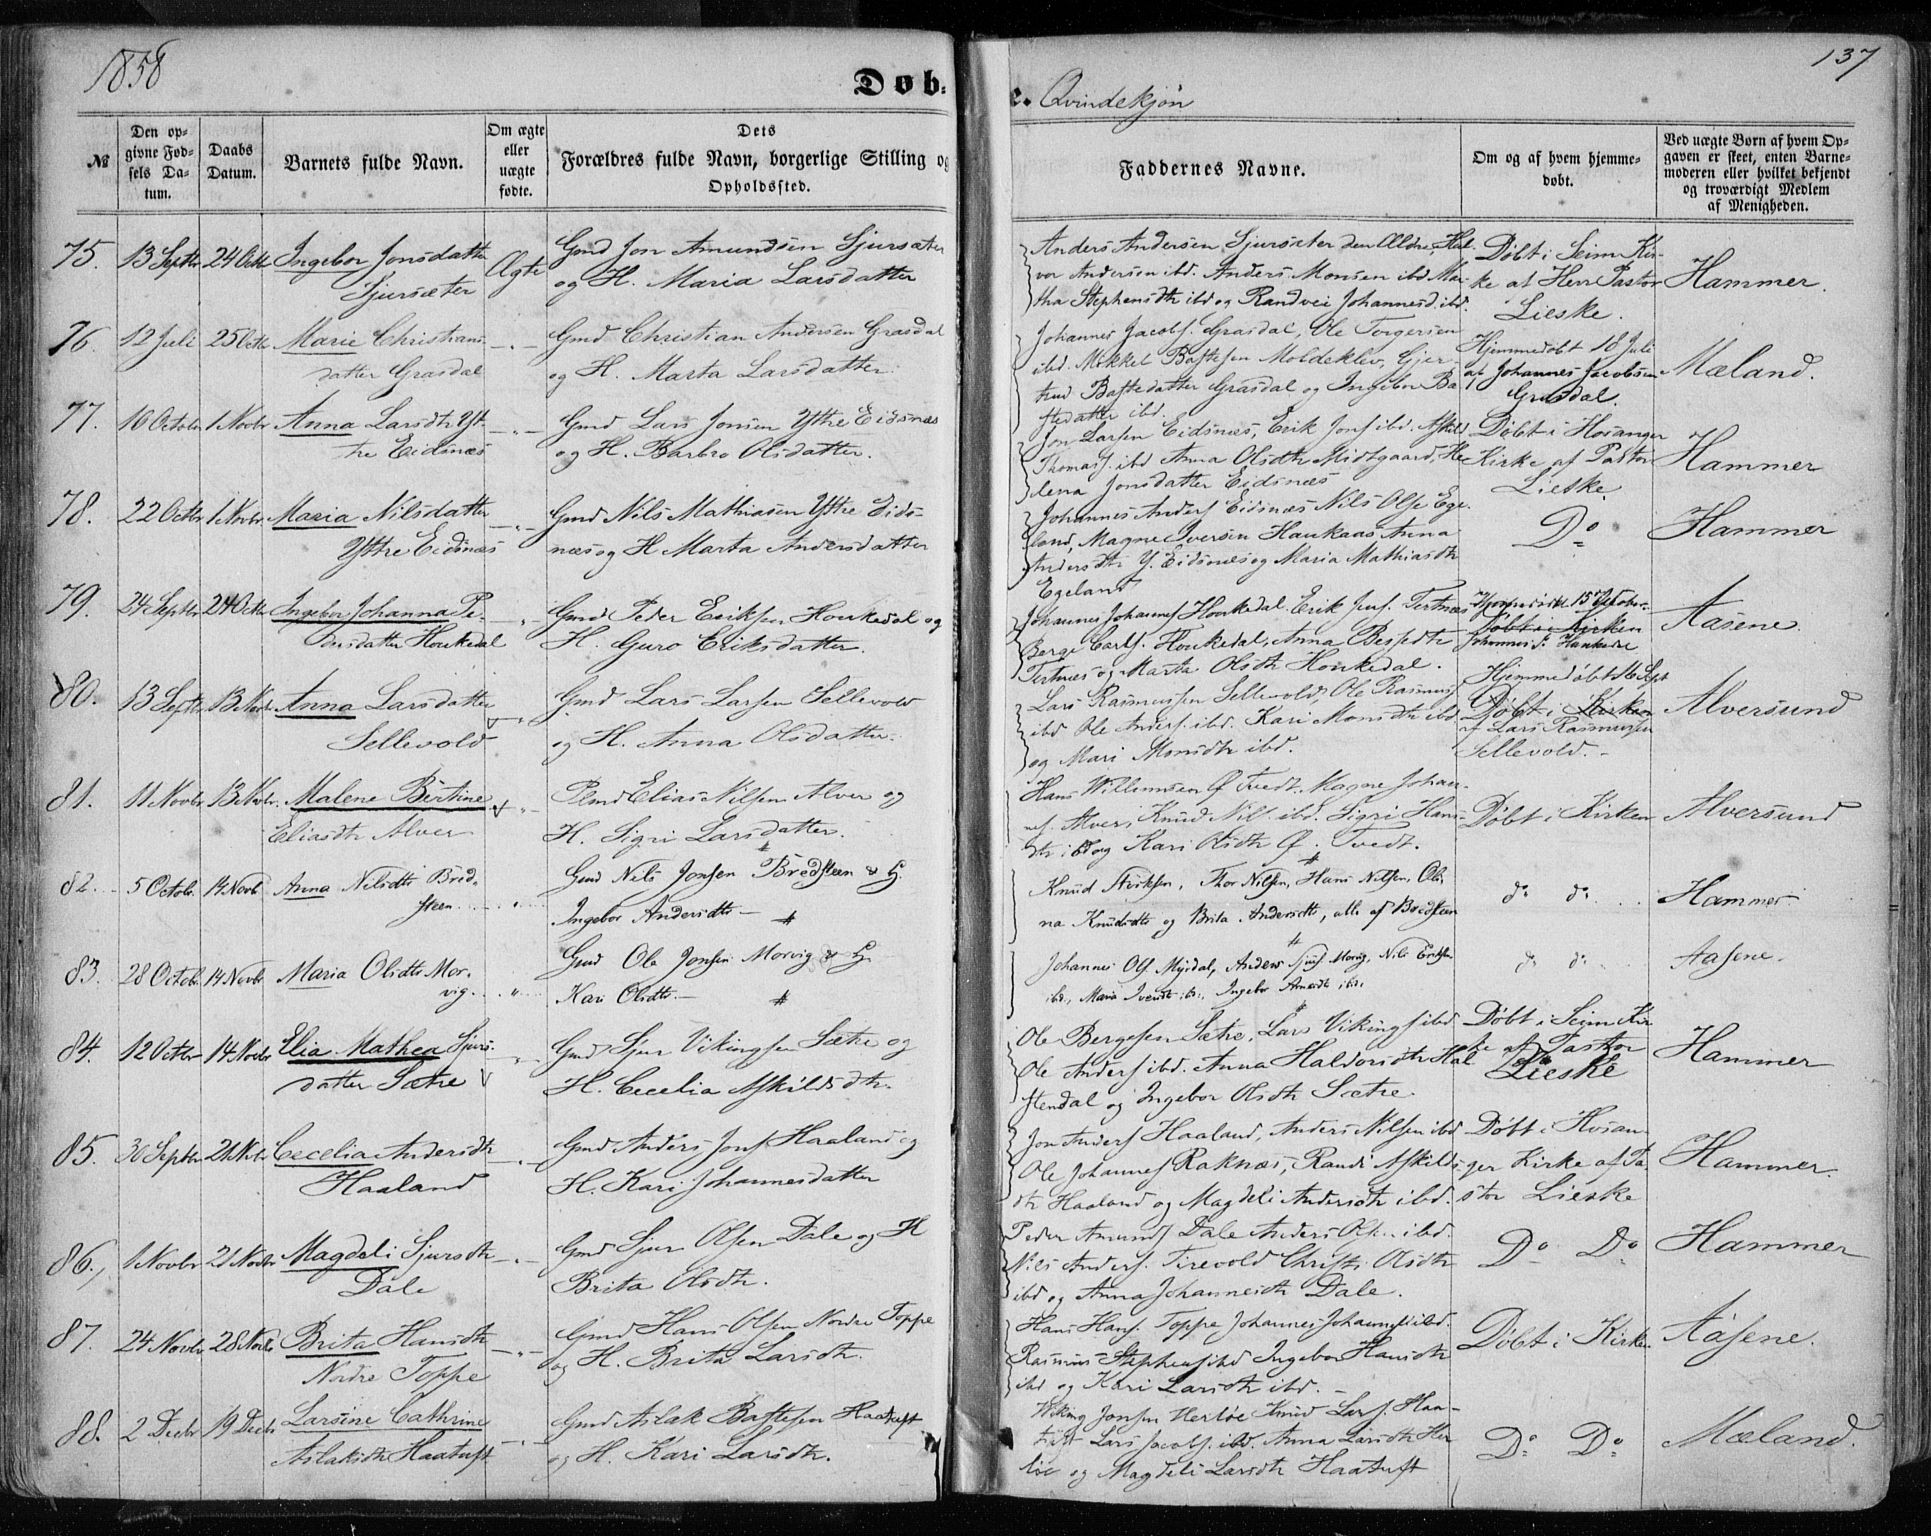 1858
Døb-
e. Qvindekjøn
137
№
Den op-
givne Fød-
sels Da-
tum.
Daabs
Datum.
Barnets fulde Navn.
Om ægte
eller
uægte
fødte.
Dets
Forældres fulde Navn, borgerlige Stilling og
Opholdssted.
Faddernes Navne.
Om og af hvem hjemme-
døbt.
Ved uægte Børn af hvem Op-
gaven er skeet, enten Barne-
moderen eller hvilket bekjendt
og troværdigt Medlem
af Menigheden.
75. 13 Septbr 24 Octbr Ingebor Jonsdatter Ægte Gmd Jon Amundsen Sjursæter
Sjursæter og H. Maria Larsdatter
Anders Andersen Sjursæter den Ældre, Hal-
vor Andersen ibd. Anders Monsen ibd. Mar-
tha Stephensdtr ibd og Randvei Johannesd. ibd.
Døbt i Seim Kir-
ke af Herr Pastor
Lieske.
Hammer.
76. 12 Juli 25 Octbr Marie Christians -"- Gmd Christian Andersen Grasdal
datter Grasdal og H. Marta Larsdatter.
Johannes Jacobs. Grasdal, Ole Torgersen
ibd. Mikkel Bastesen Moldeklev, Gjer-
trud Bastedatter Grasdal og Ingebor Ba-
stedatter ibd.
Hjemmedøbt 18 Juli
af Johannes Jacobsen
Grasdal.
Mæland.
77. 10 Octobr 1 Novbr Anna Larsdtr Yt- -"- Gmd Lars Jonsen Yttre Eidsnæs
tre Eidsnæs og H. Barbro Olsdatter.
Jon Larsen Eidsnæs, Erik Jons. ibd. Askild
Thomass. ibd Anna Olsdtr Midtgaard, He-
lena Jonsdatter Eidsnæs
Døbt i Hosanger
Kirke af Pastor
Lieske
Hammer
78. 22 Octbr 1 Novbr Maria Nilsdatter -"- Gmd Nils Mathiasen Yttre Eids-
Yttre Eidsnæs næs og H Marta Andersdatter
Johannes Anders. Eidsnæs Nils Ols. Ege-
land, Magne Iversen Haukaas Anna
Andersdtr Y. Eidsnæs og Maria Mathiasdtr
Egeland
Do
Hammer
79. 24 Septbr 24 Octbr Ingebor Johanna Pe- " Gmd Peder Eriksen Houkedal og
dersdatter Houkedal H. Guro Eriksdatter.
Johannes Johannes. Houkedal. Erik Jens. Tertnæs
Berge Carls. Houkedal, Anna
Tertnæs og Marta Olsdtr Houkedal.
Døbt i Kirken
Aasene.
80. 13 Septbr 13 Novbr Anna Larsdatter " Gmd Lars Larsen Sellevold
Sellevold og H. Anna Olsdatter.
Lars Rasmussen Sellevold, Ole Rasmus.
ibd Ole Anders. ibd. Kari Monsdtr ibd
og Mari Monsdtr ibd.
Hjemmedøbt 16 Sept
Døbt i Kirken
af Lars Rasmussen
Sellevold.
Alversund
81. 11 Novbr 13 Novbr Malene Bertine " Pmd Elias Nilsen Alver og
Eliasdtr Alver H. Sigri Larsdatter.
Hans Willumsen Ø Tvedt, Magne Johan-
nes. Alver, Knud Nils. ibd. Sigri Hans-
dtr ibd og Kari Olsdtr Ø. Tvedt.
Døbt i Kirken
Alversund
82. 5 Octobr. 14 Novb Anna Nilsdtr Bred- " Gmd Nils Jonsen Bredsteen & H.
steen. Ingebor Andersdtr
Knud Stenksen, Thor Nilsen, Hans Nilsen, Oli-
na Knudsdtr og Brita Andersdtr, alle af Bredsteen
do do
Hammer
83. 28 Octobr. 14 Novbr Maria Olsdtr Mor- " Gmd Ole Jonsen Morvig & H.
vig. Kari Olsdtr.
Johannes Ols. Myrdal, Anders Morvig, Nils Eriksen
ibd., Maria ibd., Ingebor ibd.
do do
Aasene.
84. 12 Octbr 14 Novbr Elia Mathea Sjurs- " Gmd Sjur Vikingsen Sætre og
datter Sætre H. Cecelia Askildsdtr.
Ole Bergesen Sætre, Lars Vikings ibd
Ole Anders. ibd. Anna Haldorsdtr Hal
stendal og Ingebor Olsdtr Sætre.
Døbt i Seim Kir
ke af Pastor
Lieske
Hammer
85. 30 Septbr 21 Novbr Cecelia Andersdtr -"- Gmd Anders Jons. Haaland og
Haaland H. Kari Johannesdatter
Jon Anders. Haaland, Anders Nilsen ibd
Ole Johannes. Raknæs, Randi Askilds-
dtr Haaland og Magdeli Andersdtr ibd.
Døbt i Hosan-
ger Kirke af Pa-
stor Lieske
Hammer.
86. 1 Novbr 21 Novbr Magdeli Sjursdtr -"- Gmd Sjur Olsen Dale og H
Dale Brita Olsdtr.
Peder Amunds. Dale Anders Ols. ibd.
Nils Anders. Tirevold Christi Olsdtr
ibd og Anna Johannesdtr Dale.
Do Do
Hammer
87. 24 Novbr 28 Novbr Brita Hansdtr -"- Gmd Hans Olsen Nordre Toppe
Nordre Toppe og H. Brita Larsdtr.
Hans Hans. Toppe Johannes Johannes. ibd.
Rasmus Stephens. ibd Ingebor Hansdtr
ibd og Kari Larsdtr ibd.
Døbt i Kirken
Aasene.
88. 2 Decbr 19 Decbr Larsine Cathrine -"- Gmd Aslak Bastesen Haatuft
Aslaksdtr Haatuft og H. Kari Larsdtr.
Viking Jonsen Herløe Knud Lars. Haa-
tuft Lars Jacobs. ibd. Anna Larsdtr Her
løe og Magdeli Larsdtr Haatuft
Do Do
Mæland.